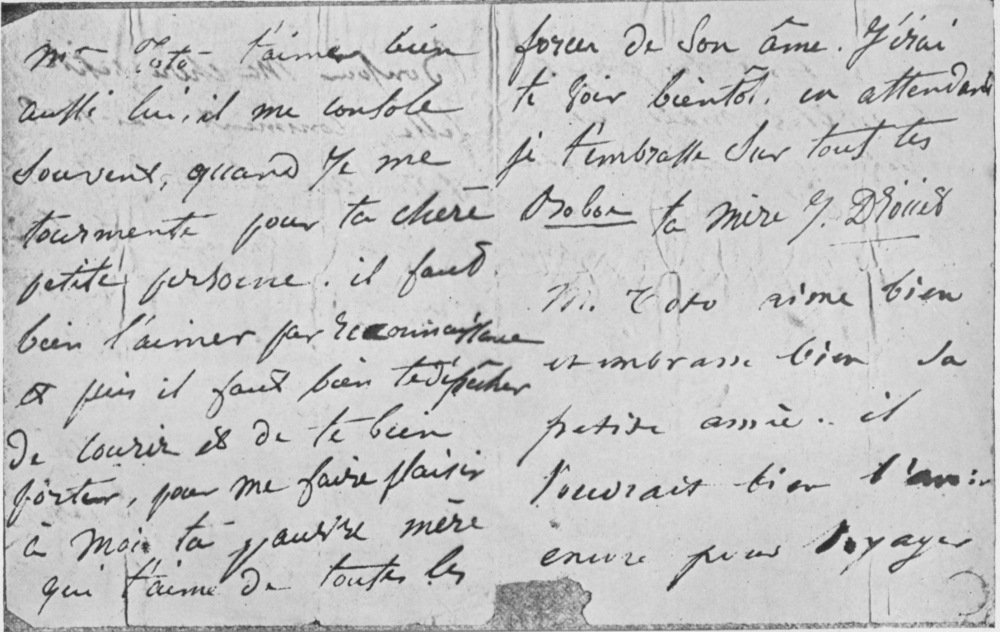 Mr Toto t'aime bien
aussi lui, il me console
souvent, quand je me
tourmente pour ta chère
petite persone. il faut
bien l'aimer par reconnaissance
et puis il faut bien te dépêcher
de courir et de te bien
porter, pour me faire plaisir
à moi, ta pauvre mère
qui t'aime de toutes les
forces de son âme. J'irai
te voir bientôt. en attendant
je t'embrasse sur tout tes
bobos ta mère J. Drouet
M. Toto aime bien
et embrasse bien sa
petite amie. il
voudrait bien l'avoir
encore pour voyager